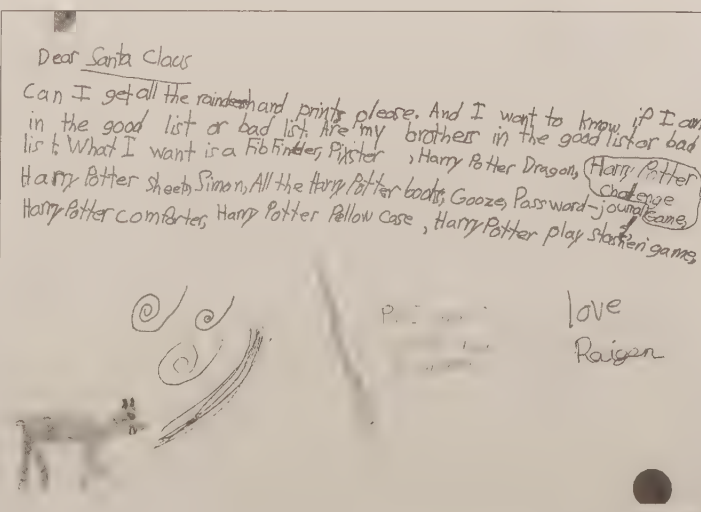 Dear Santa Claus
Can I get all the raindeer hand prints please. And I want to know if I am
in the good list or bad list. Are my brothers in the good list or bad
list. What I want is a Fib Finder, Pixster , Harry Potter Dragon, Harry Potter
Chalenge
Harry Potter sheets, Simon, All the Harry Potter books, Gooze, Password-journal, Game,
Harry Potter comforter, Harry Potter Pellow case , Harry Potter play station game,
love
Raigen